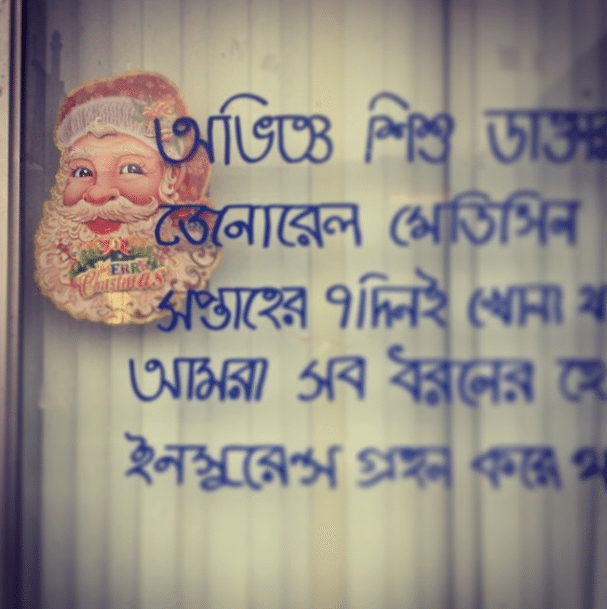 MERRY
Christmas
অভিজ্ঞ শিশু
জেনারেল মেডিসিন
সপ্তাহের ৭দিনই খোলা
আমরা সব ধরনের
ইনস্যুরেন্স গ্রহন করে